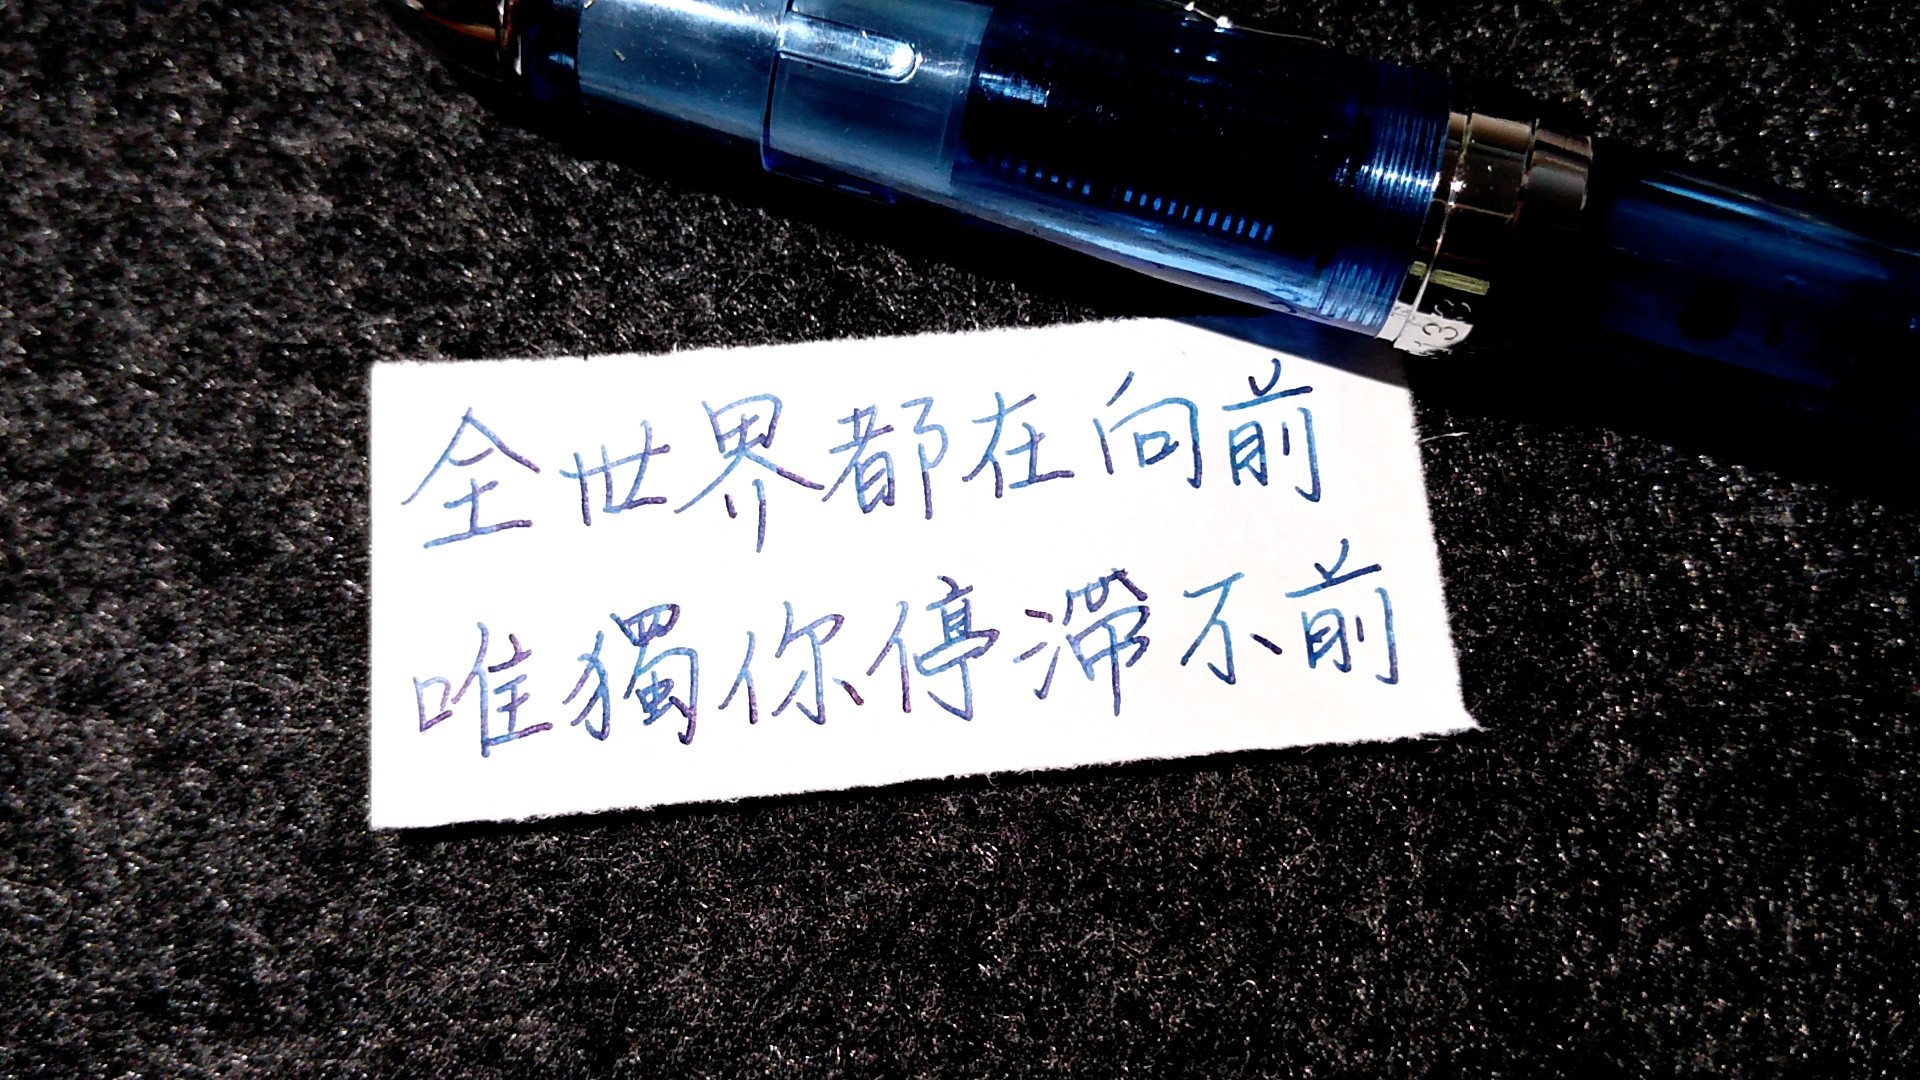 全世界都在向前
唯獨你停滯不前